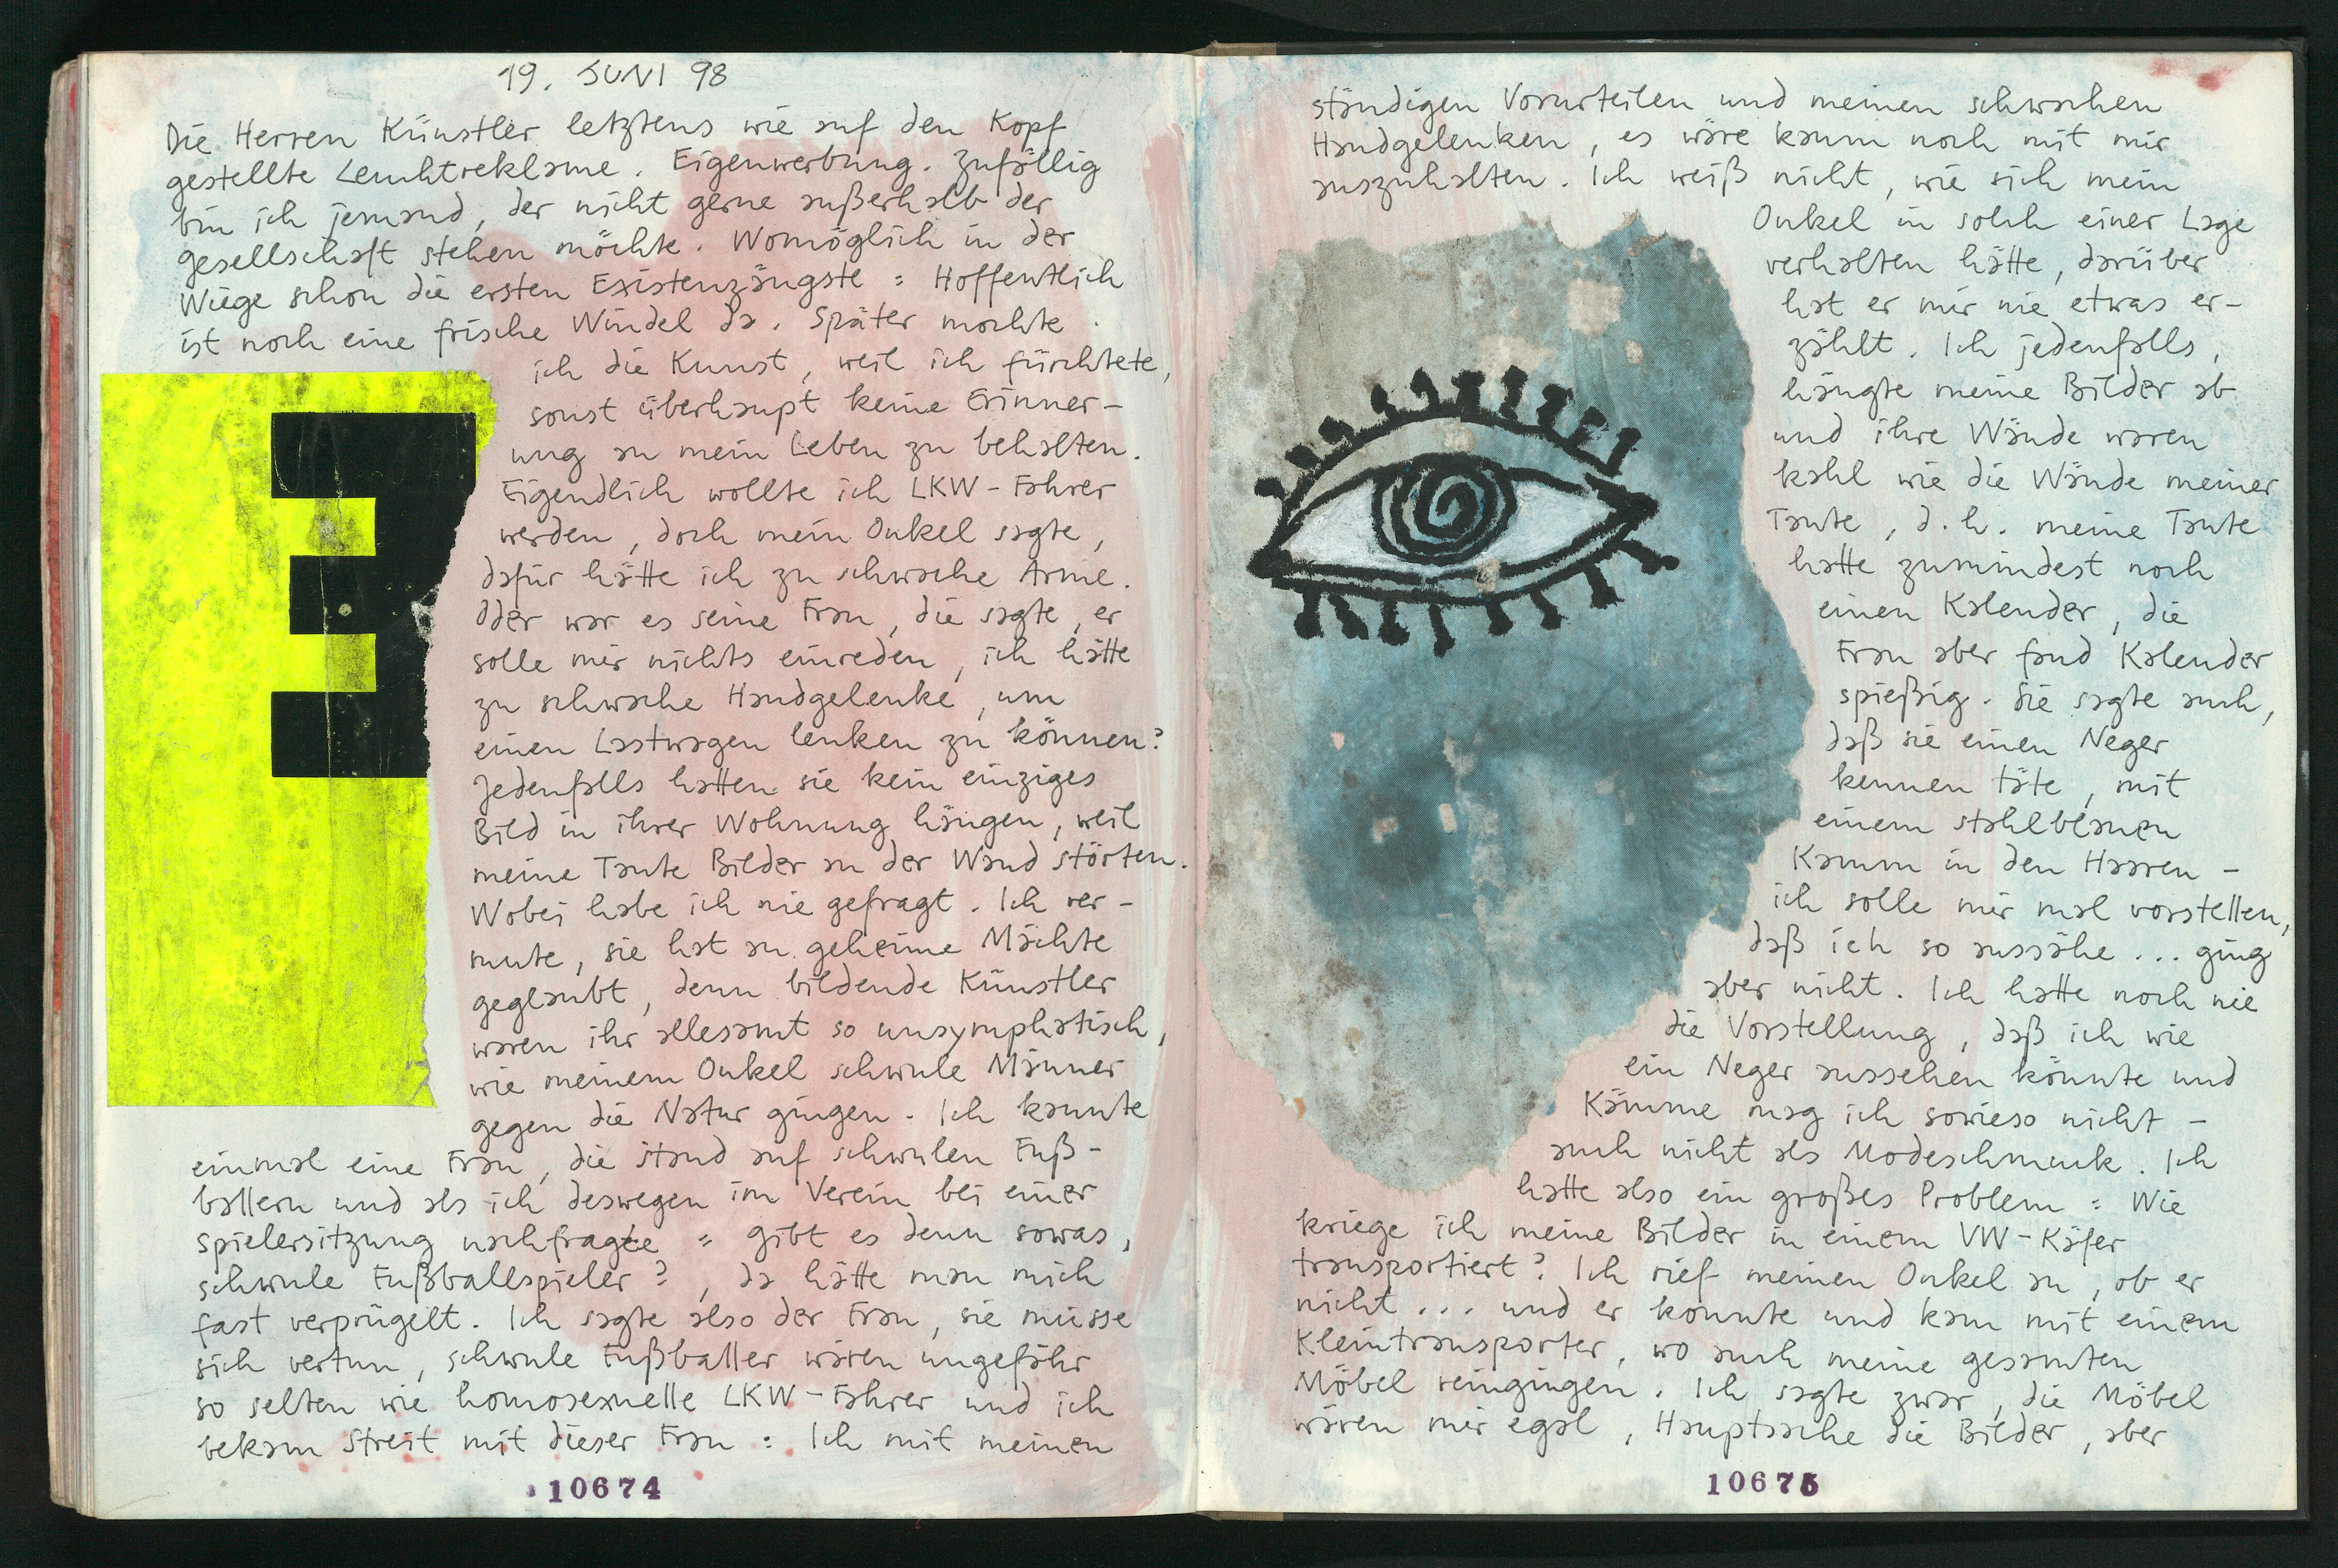 19. JUNI 98
Die Herren Künstler letztens wie auf den Kopf
gestellte Leuchtreklame. Eigenwerbung. Zufällig
bin ich jemand, der nicht gerne außerhalb der
Gesellschaft stehen möchte. Womöglich in der
Wiege schon die ersten Existenzängste: Hoffentlich
ist noch eine frische Windel da. Später mochte
ich die Kunst, weil ich fürchtete,
sonst überhaupt keine Erinner-
ung an mein Leben zu behalten.
Eigendlich wollte ich LKW-Fahrer
werden, doch mein Onkel sagte,
dafür hätte ich zu schwache Arme.
Oder war es seine Frau, die sagte, er
solle mir nichts einreden, ich hätte
zu schwache Handgelenke, um
einen Lastwagen lenken zu können?
Jedenfalls hatten sie kein einziges
Bild in ihrer Wohnung hängen, weil
meine Tante Bilder an der Wand störten.
Wobei habe ich nie gefragt. Ich ver-
mute, sie hat an geheime Mächte
geglaubt, denn bildende Künstler
waren ihr allesamt so unsymphatisch,
wie meinem Onkel schwule Männer
gegen die Natur gingen. Ich kannte
einmal eine Frau, die stand auf schwulen Fuß-
ballern und als ich deswegen im Verein bei einer
Spielersitzung nachfragte: gibt es denn sowas,
schwule Fußballspieler?, da hätte man mich
fast verprügelt. Ich sagte also der Frau, sie müsse
sich vertun, schwule Fußballer wären ungefähr
so selten wie homosexuelle LKW-Fahrer und ich
bekam Streit mit dieser Frau: Ich mit meinen
10674
ständigen Vorurteilen und meinen schwachen
Handgelenken, es wäre kaum noch mit mir
auszuhalten. Ich weiß nicht, wie sich mein
Onkel in solch einer Lage
verhalten hätte, darüber
hat er mir nie etwas er-
zählt. Ich jedenfalls,
hängte meine Bilder ab
und ihre Wände waren
kahl wie die Wände meiner
Tante, d.h. meine Tante
hatte zumindest noch
einen Kalender, die
Frau aber fand Kalender
spießig. Sie sagte auch,
daß sie einen Neger
kennen täte, mit
einem stahlblauen
Kamm in den Haaren -
ich solle mir mal vorstellen,
daß ich so aussähe... ging
aber nicht. Ich hatte noch nie
die Vorstellung, daß ich wie
ein Neger aussehen könnte und
Kämme mag ich sowieso nicht -
auch nicht als Modeschmuck. Ich
hatte also ein großes Problem: Wie
kriege ich meine Bilder in einem VW-Käfer
transportiert? Ich rief meinen Onkel an, ob er
nicht... und er konnte und kam mit einem
Kleintransporter, wo auch meine gesamten
Möbel reingingen. Ich sagte zwar, die Möbel
wären mir egal, Hauptsache die Bilder, aber
10675